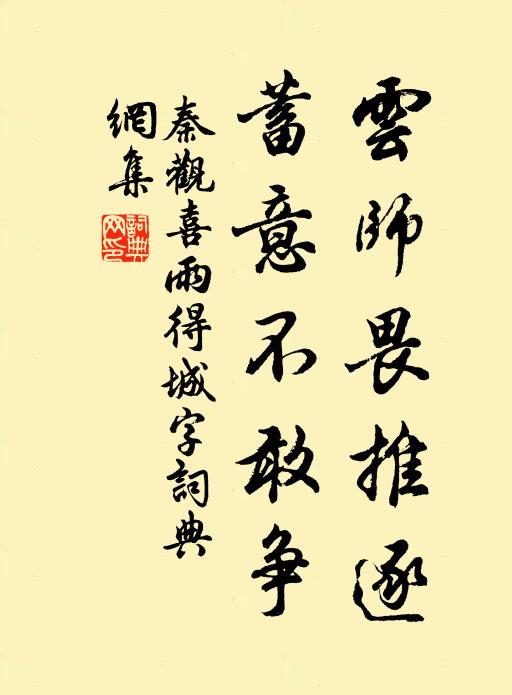 雲師畏推逐
蓄意不敢争
秦觀喜雨得城字詞典
網集
詞典
网印